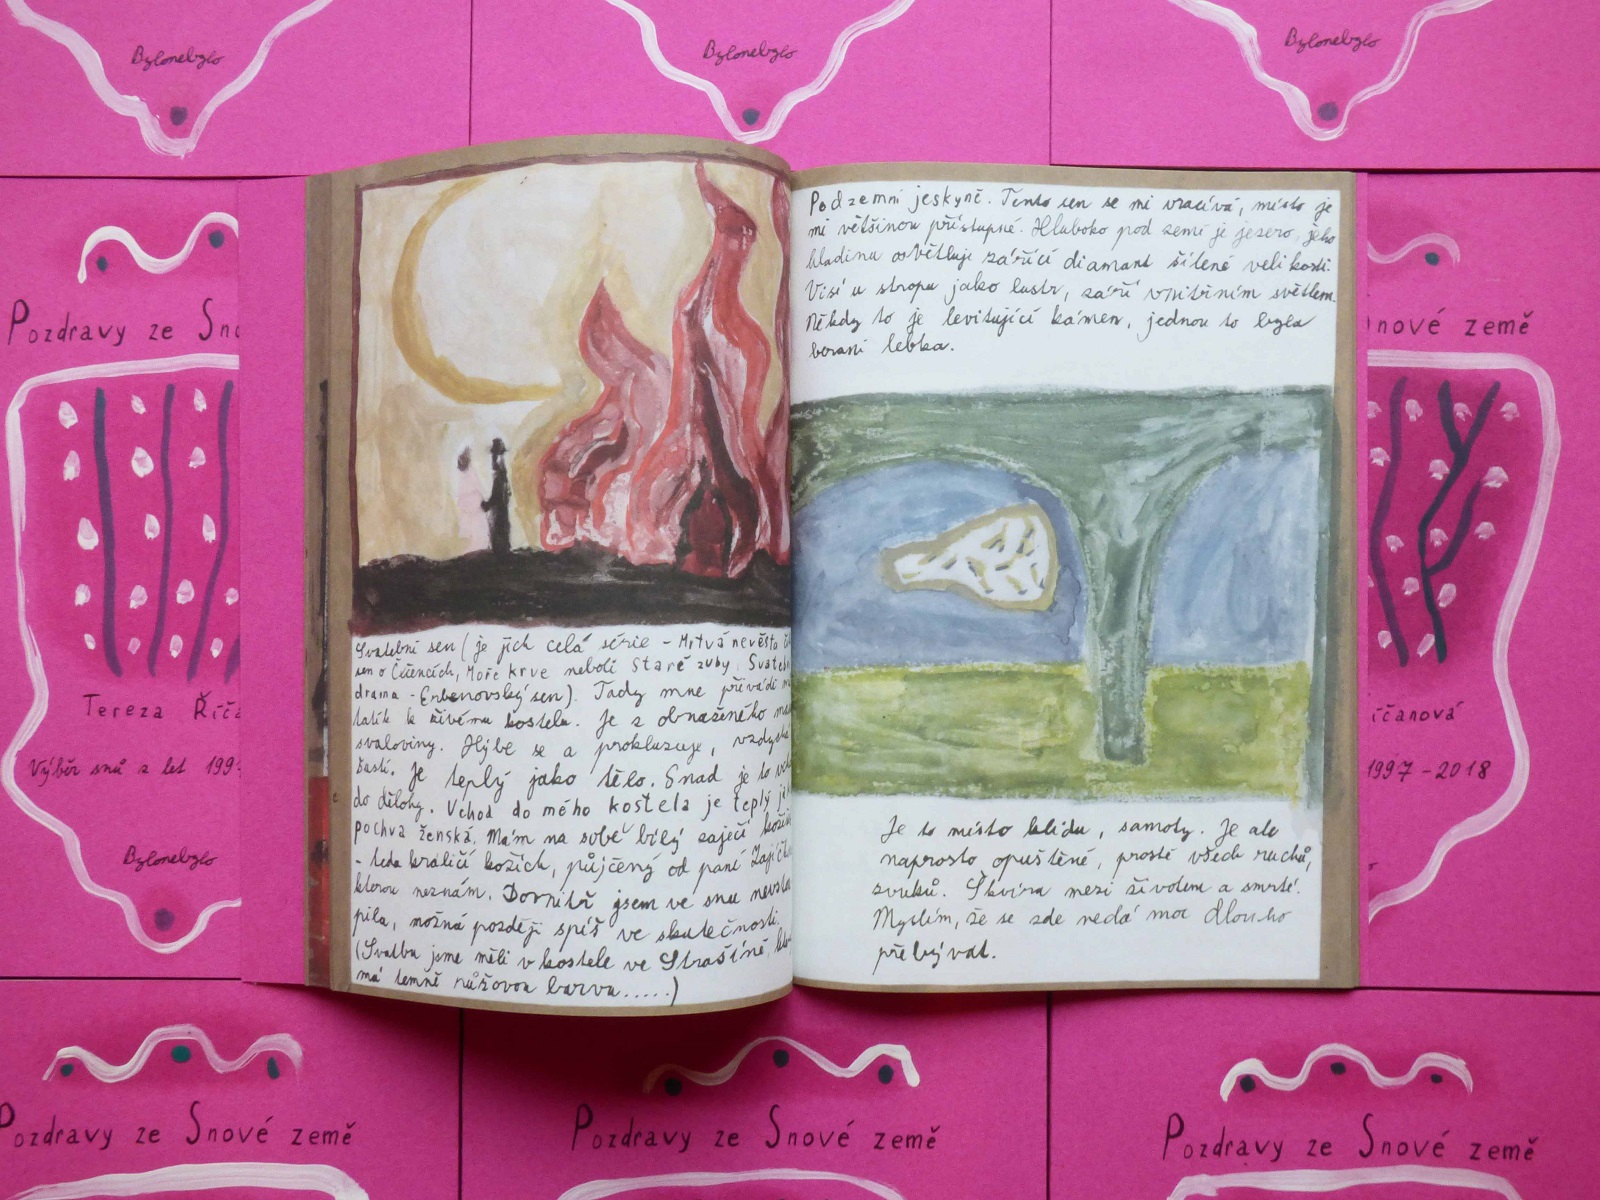 Bylonebylo
Bylonebylo
Bylonebylo
Pozdravy ze Sno
Tereza Říča
Výběr snů z let 199
Bylonebylo
Svatební sen (je jich celá série - Mrtvá nevěsta
sen o Číčencích, Moře krve neboli Staré zuby, Svateb
drama - Erbenovský sen). Tady mne přivádí
tatík k živému kostelu. Je z obnaženého
svaloviny. Hýbe se a prokluzuje, vzdych
častí. Je teplý jako tělo. Snad je to
do dělohy. Vchod do mého kostela je teplý
pochva ženská. Mám na sobě bílý zaječí
- teda králičí kožich, půjčený od paní Zajíč
kterou neznám. Dovnitř jsem ve snu nevstou
pila, možná později spíš ve skutečnosti.
(Svatbu jsme měli v kostele ve Strašíně,
má temně růžovou barvu.....)
Podzemní jeskyně. Tento sen se mi vracívá, místo je
mi většinou přístupné. Hluboko pod zemí je jezero, jeho
hladinu osvětluje zářící diamant šílené velikosti.
Visí u stropu jako lustr, září vnitřním světlem.
Někdy to je levitující kámen, jednou to byla
beraní lebka.
Je to místo klidu, samoty. Je ale
naprosto opuštěné, prosté všech ruchů,
zvuků. Škvíra mezi životem a smrtí.
Myslím, že se zde nedá moc dlouho
přebývat.
nové země
íčanová
1997 - 2018
Pozdravy ze Snové země
Pozdravy ze Snové země
Pozdravy ze Snové země